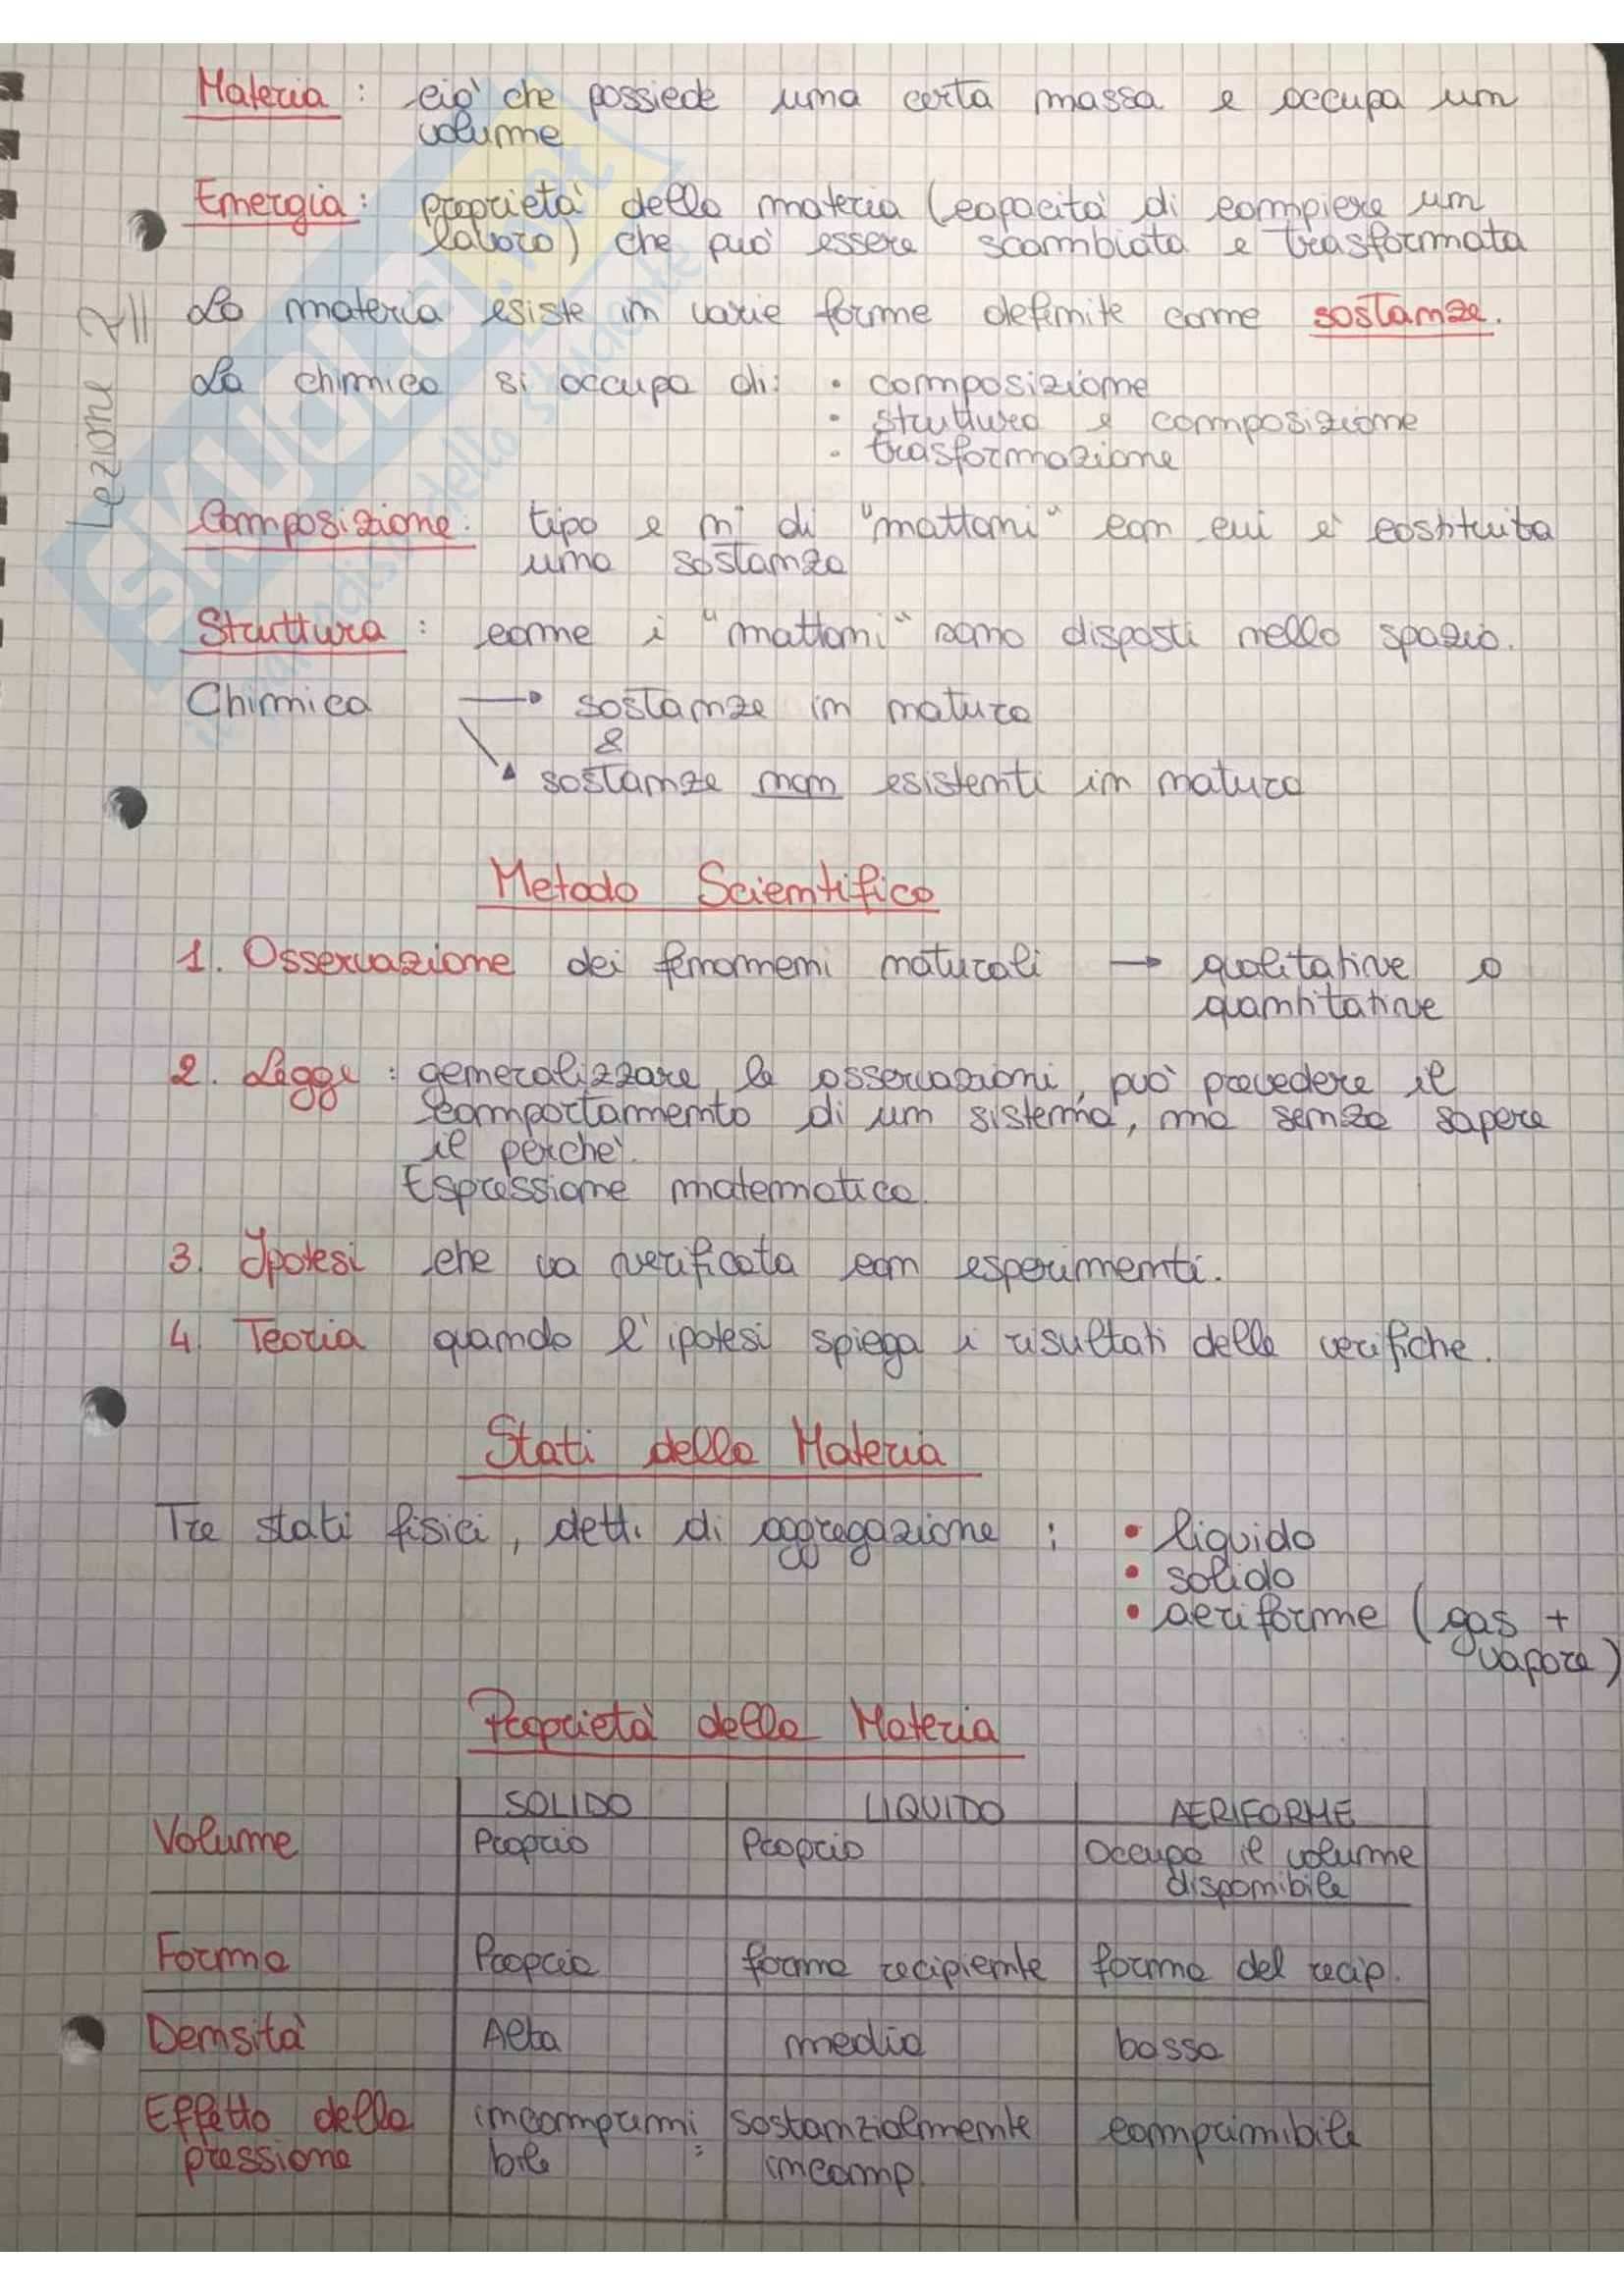 Materia : ciò che possiede una certa massa e occupa un
volume
Energia : proprietà della materia (capacità di compiere un
lavoro) che può essere scambiata e trasformata
Lezione 2//
La materia esiste in varie forme definite come sostanze.
La chimica si occupa di: • composizione
• struttura e composizione
• trasformazione
Composizione: tipo e n° di "mattoni" con cui è costituita
una sostanza
Struttura : come i "mattoni" sono disposti nello spazio.
Chimica → sostanze in natura
&
sostanze non esistenti in natura
Metodo Scientifico
1. Osservazione dei fenomeni naturali → qualitative o
quantitative
2. Legge : generalizzare le osservazioni, può prevedere il
comportamento di un sistema, ma senza sapere
il perchè.
Espressione matematica.
3. Ipotesi che va verificata con esperimenti.
4. Teoria quando l'ipotesi spiega i risultati delle verifiche.
Stati della Materia
Tre stati fisici, detti di aggregazione : • liquido
• solido
• aeriforme (gas +
vapore)
Proprietà della Materia
SOLIDO LIQUIDO AERIFORME
Volume Proprio Proprio Occupa il volume
disponibile
Forma Propria forma recipiente forma del recip.
Densità Alta media bassa
Effetto della incomprimi sostanzialmente comprimibile
pressione bile incomp.
SKUOLA.net